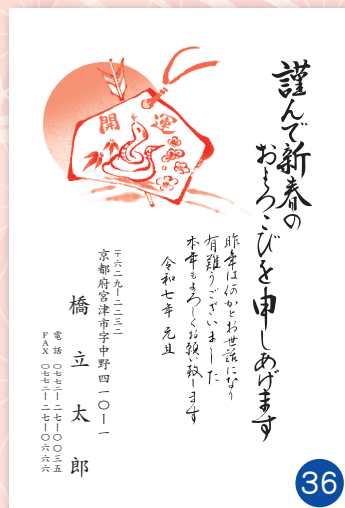 謹んで新春の
およろこびを申しあげます
昨年は何かとお世話になり
有難うございました
本年もよろしくお願い致します
令和七年 元旦
開運
〒六二九ー二二三二
京都府宮津市字中野四一〇ー一
橋立太郎
電話 〇七七二ー二七ー〇〇三五
FAX 〇七七二ー二七ー〇六六六
36